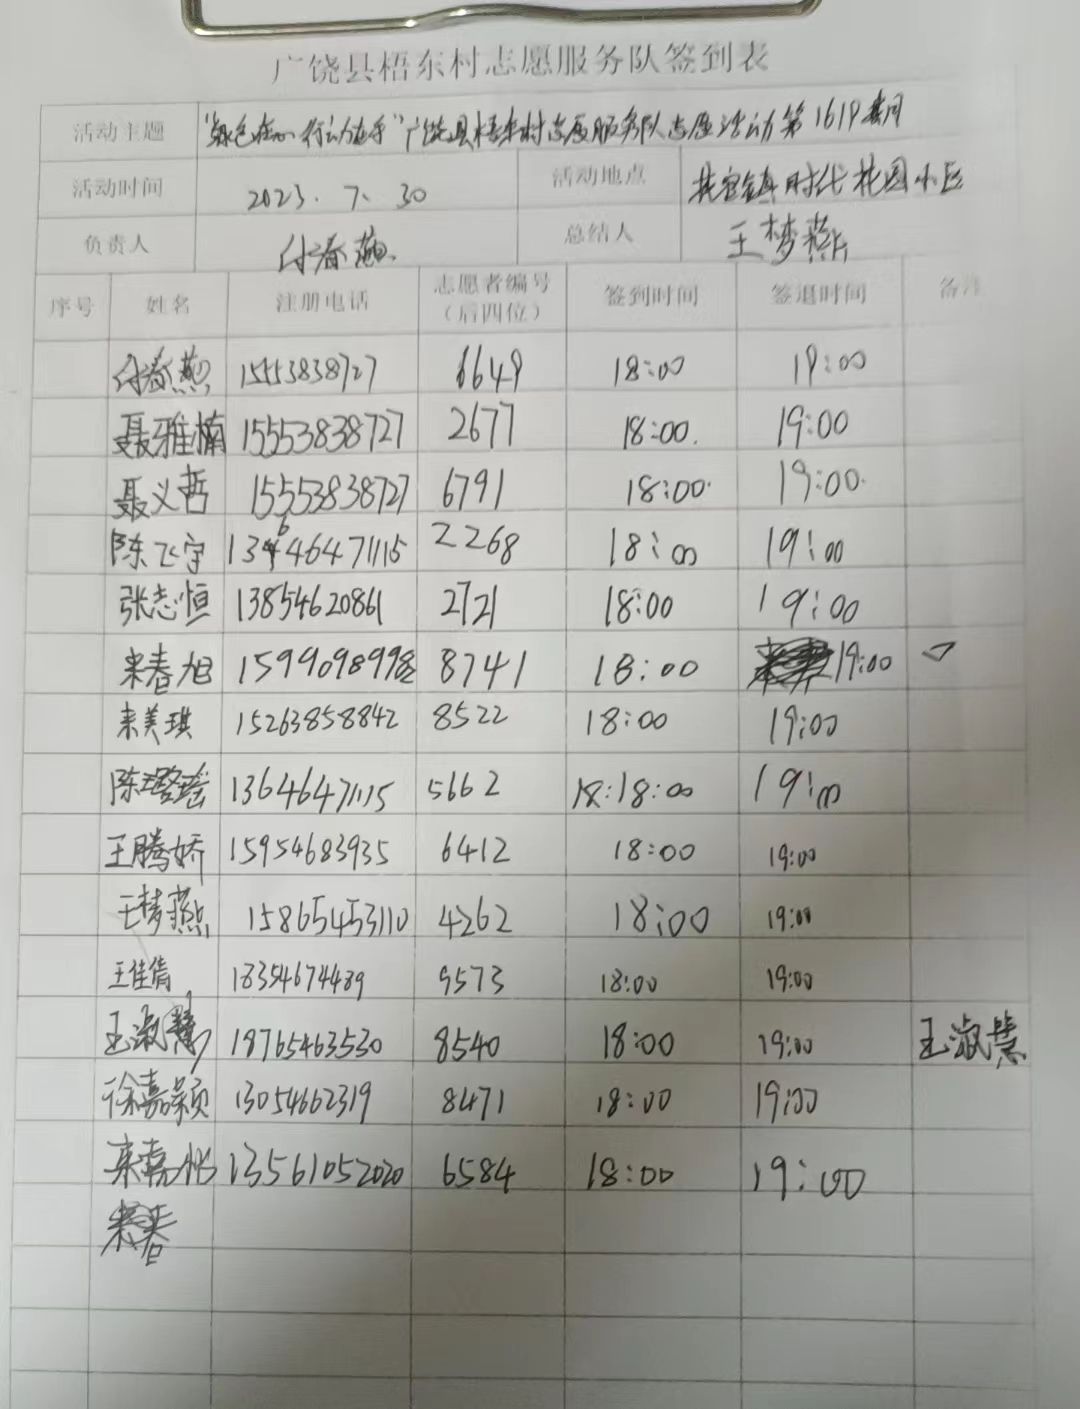 广饶县梧东村志愿服务队签到表
活动主题 "绿色在心 行动在手"广饶县梧东村志愿服务队志愿活动第1619期
活动时间 2023.7.30 活动地点 花官镇时代花园小区
负责人 付春燕 总结人 王梦燕
序号 姓名 注册电话 志愿者编号（后四位） 签到时间 签退时间 备注
付春燕 15553838727 6649 18:00 19:00
聂雅楠 15553838727 2677 18:00 19:00
聂义哲 15553838727 6791 18:00 19:00
陈飞宇 13646471115 2268 18:00 19:00
张志恒 13854620861 2721 18:00 19:00
来春旭 15990989982 8741 18:00 19:00
来美琪 15263858842 8522 18:00 19:00
陈璐瑶 13646471115 5662 18:18:00 19:00
王腾娇 15954683935 6412 18:00 19:00
王梦燕 15865453110 4262 18:00 19:00
王佳倩 18354674489 9573 18:00 19:00
王淑慧 18765463530 8540 18:00 19:00 王淑慧
徐嘉颖 13054662319 8471 18:00 19:00
来嘉怡 13561052020 6584 18:00 19:00